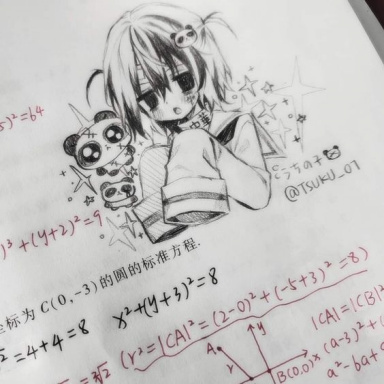 5)²=64
)³+(y+2)²=9
中華
@TSUKU_01
坐标为C(0,-3)的圆的标准方程.
²=4+4=8 x²+(y+3)²=8
(r²=|CA|²=(2-0)²+(-5+3)²=8)
=2√2
A
r
y
B(0,0)
x
|CA|=|CB|
(a-3)²+(
a²-6a+9